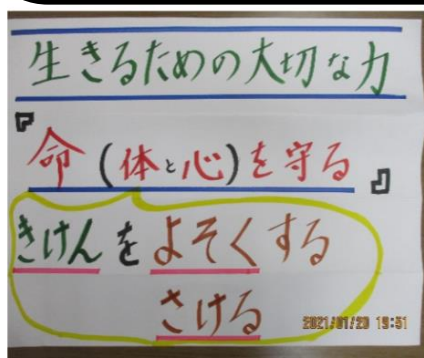 生きるための大切な力
『命(体と心)を守る』
きけんをよそくする
さける
2021/01/20 19:51